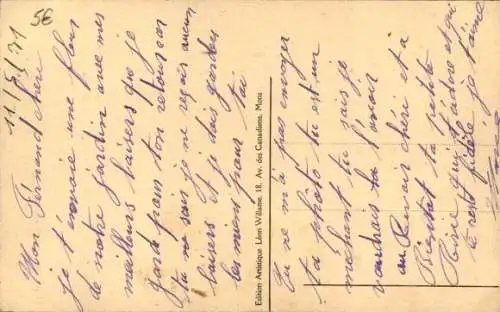 56
11/5/31
Mon Fernand chéri
je t'envoie une fleur
de notre jardin avec mes
meilleurs baisers que je
garde pour ton retour car
tu ne sais je ne reçois aucun
baisers et je dois garder
les miens pour toi
Edition Artistique Léon Willame, 18, Av. des Canadiens, Mons
Tu ne m'a pas envoyer
ta photo tu est un
méchant tu sais je
voudrais la l'avoir
au Revoir chéri et à
Bientot ta petite
qui t'adore et qui
te rest fidèle je t'aime